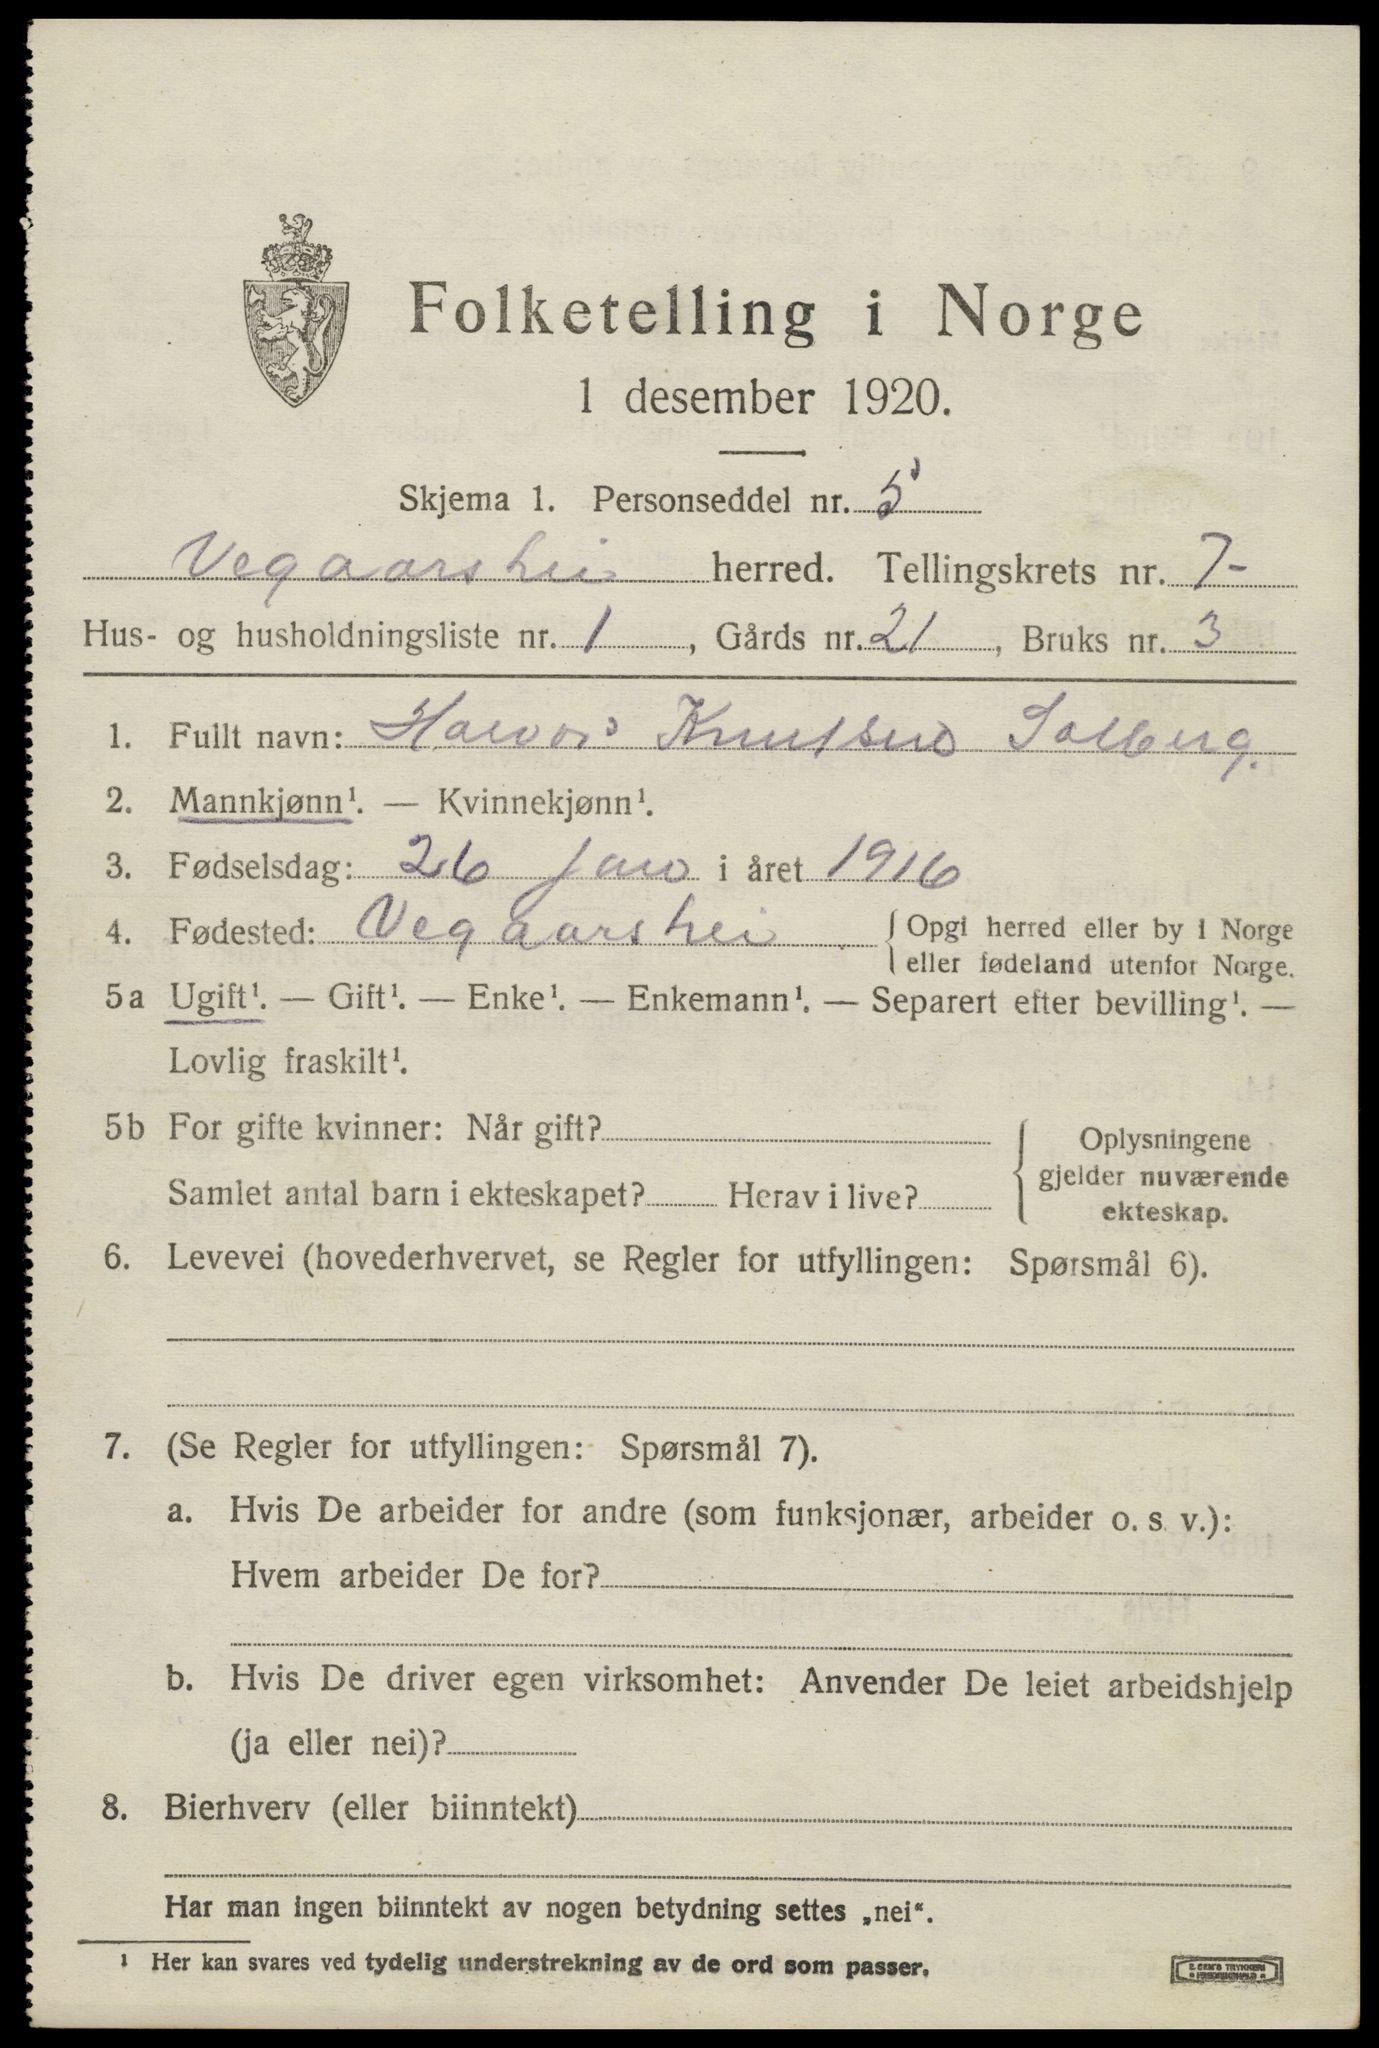 Folketelling i Norge
1 desember 1920.
Skjema 1. Personseddel nr. 5
Vegaarshei herred. Tellingskrets nr. 7-
Hus- og husholdningsliste nr. 1, Gårds nr. 21, Bruks nr. 3
1. Fullt navn: Halvor Knutsen Solberg.
2. Mannkjønn¹. — Kvinnekjønn¹.
3. Fødselsdag: 26 Jan i året 1916
4. Fødested: Vegaarshei { Opgi herred eller by i Norge
eller fødeland utenfor Norge.
5a Ugift¹. — Gift¹. — Enke¹. — Enkemann¹. — Separert efter bevilling¹. —
Lovlig fraskilt¹.
5b For gifte kvinner: Når gift?
Samlet antal barn i ekteskapet? Herav i live?
{ Oplysningene
gjelder nuværende
ekteskap.
6. Levevei (hovederhvervet, se Regler for utfyllingen: Spørsmål 6).
7. (Se Regler for utfyllingen: Spørsmål 7).
a. Hvis De arbeider for andre (som funksjonær, arbeider o. s. v.):
Hvem arbeider De for?
b. Hvis De driver egen virksomhet: Anvender De leiet arbeidshjelp
(ja eller nei)?
8. Bierhverv (eller biinntekt)
Har man ingen biinntekt av nogen betydning settes „nei“.
¹ Her kan svares ved tydelig understrekning av de ord som passer.